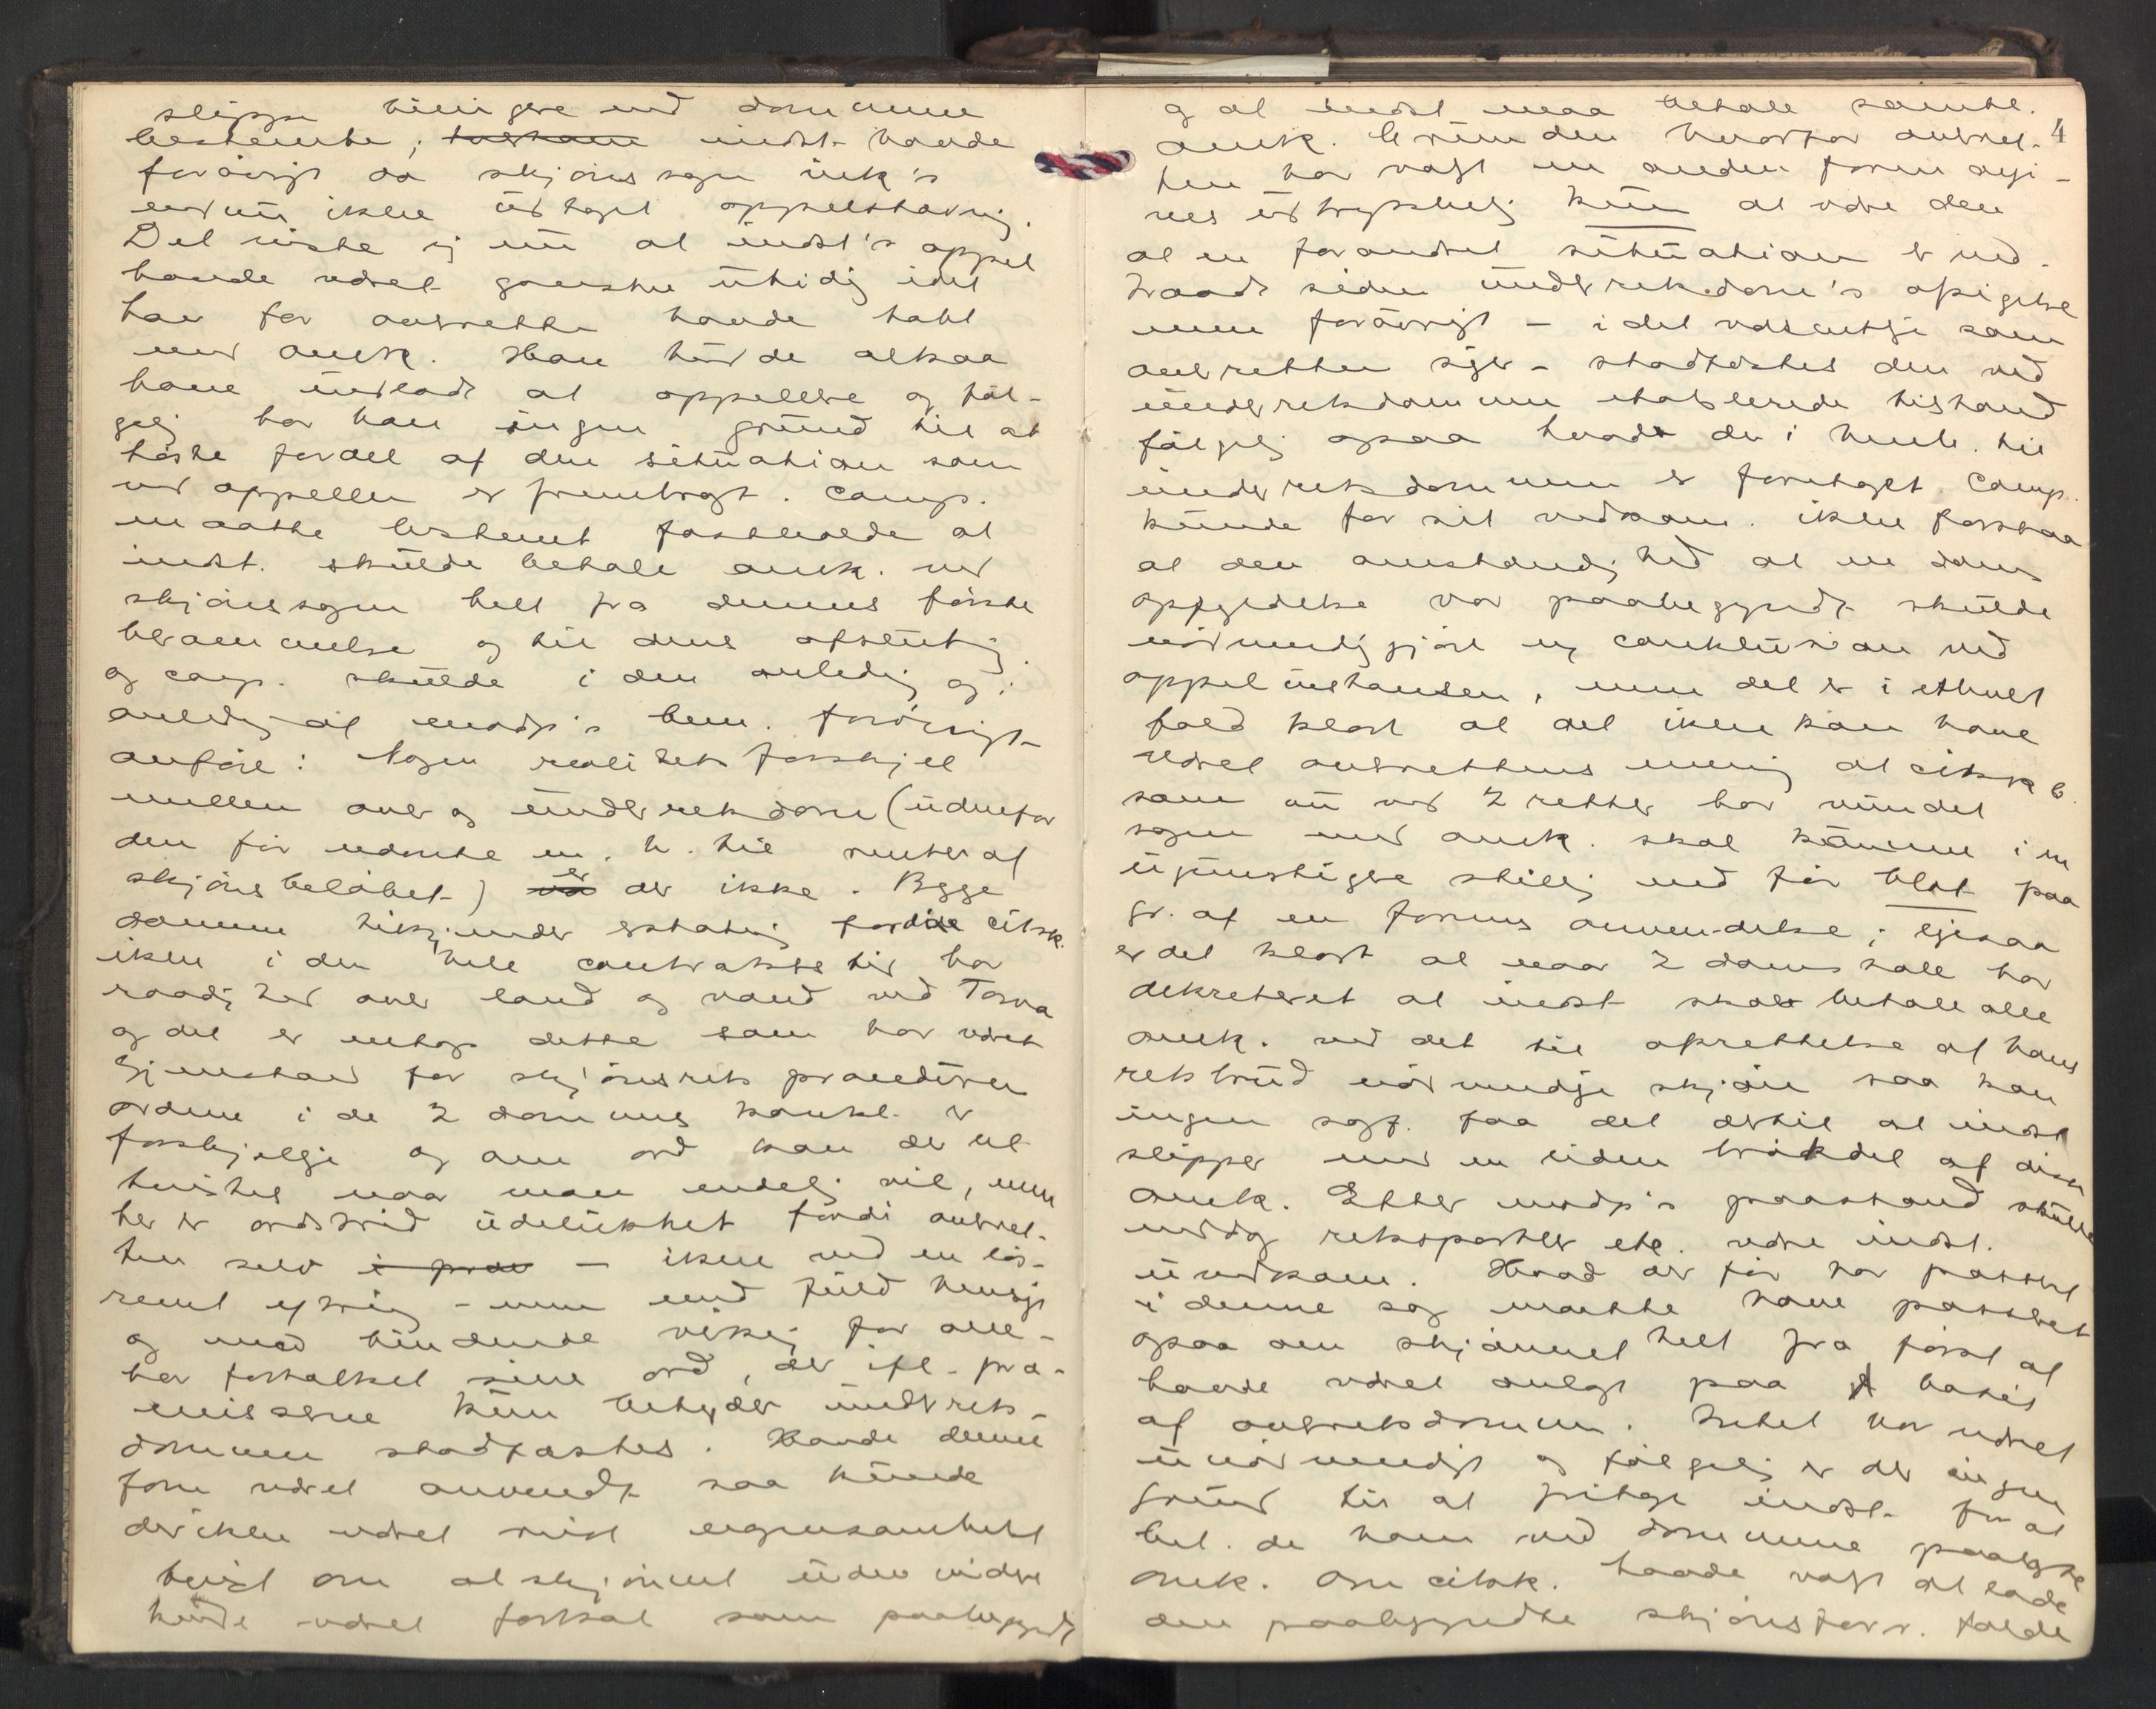 slippe billigere end dommene
bestemte; indst. havde
forövrigt da skjönssagen ink's
endnu ikke udtaget appelstævning.
Det viste sig nu at indst's appel
havde været ganske utidig idet
han for overretten havde tabt
med omk. Han burde altsaa
have undladt at appellere og föl-
gelig har han ingen grund til at
höste fordel af den situation som
ved appellen er frembragt. Comp.
maatte bestemt fastholde at
indst. skulde betale omk. ved
skjönssagen helt fra dennes förste
berammelse og til dens afslutning
og comp. skulde i den anledning og i
anledn. af modp's bem. forövrigt
anföre: Nogen realitets forskjel
mellem over og underretsdom (udenfor
den för nævnte m. h. til renter af
skjönsbelöbet) er der ikke. Begge
domme tilkjender erstatning fordi citsk.
ikke i den hele contraktstid har
raadighed over land og vand ved Torva
og det er netop dette som har været
gjenstand for skjönsrets prövelse
ordene i de 2 dommes konkl. er
forskjellige og om ord kan der jo
tvistes naar man endelig vil, men
her er ordstrid udelukket fordi overret-
ten selv - ikke ved en lös-
revet ytring - men med fuld hensigt
og med bindende virkning for alle -
har fortolket sine ord, der ifl. præ-
misserne kun betyder underrets-
dommen stadfæstes. Havde denne
form været anvendt saa kunde
der ikke været reist nogensomhelst
tvist om at skjönnet uden videre
kunde været fortsat som paabegyndt
og at indst maa betale samtl. 4
omk. Grunden hvorfor overret-
ten har valgt en anden form angi-
ves udtrykkelig kun at være den
at en forandret situation er ind-
traadt siden underretsdom's afsigelse
men forövrigt - i det væsentlige som
overretten siger - stadfæstes den ved
underretsdommen etablerede tilstand
fölgelig ogsaa hvad der i henh. til
underretsdommen er foretaget. Comp.
kunde for sit vedkom. ikke forstaa
at den omstændighed at en doms
opfyldelse var paabegyndt skulde
nödvendiggjöre ny conklusion ved
appelinstansen, men det er i ethvert
fald klart at det ikke kan have
været overrettens mening at citsk
som nu ved 2 retter har vundet
sagen med omk. skal komme i en
ugunstigere stilling end för blot paa
gr. af en forms anvendelse; ligesaa
er det klart at naar 2 domstole har
dekreteret at indst skal betale alle
omk. ved det til oprettelse af hans
retsbrud nödvendige skjön saa kan
ingen sagf. faa det dertil at indst
slipper med en liden brökdel af disse
omk. Efter modp's paastand skulde
endog retsparter etc. være indst.
uvedkom. Hvad der för har passeret
i denne sag maatte have passeret
ogsaa om skjönnet helt fra först af
havde været anlagt paa basis
af overretsdommen. Intet har været
unödvendigt og fölgelig er der ingen
grund til at fritage indst. for at
bet. de ham ved dommene paalagte
omk. Om citsk. havde valgt at lade
den paabegyndte skjönsforr. falde